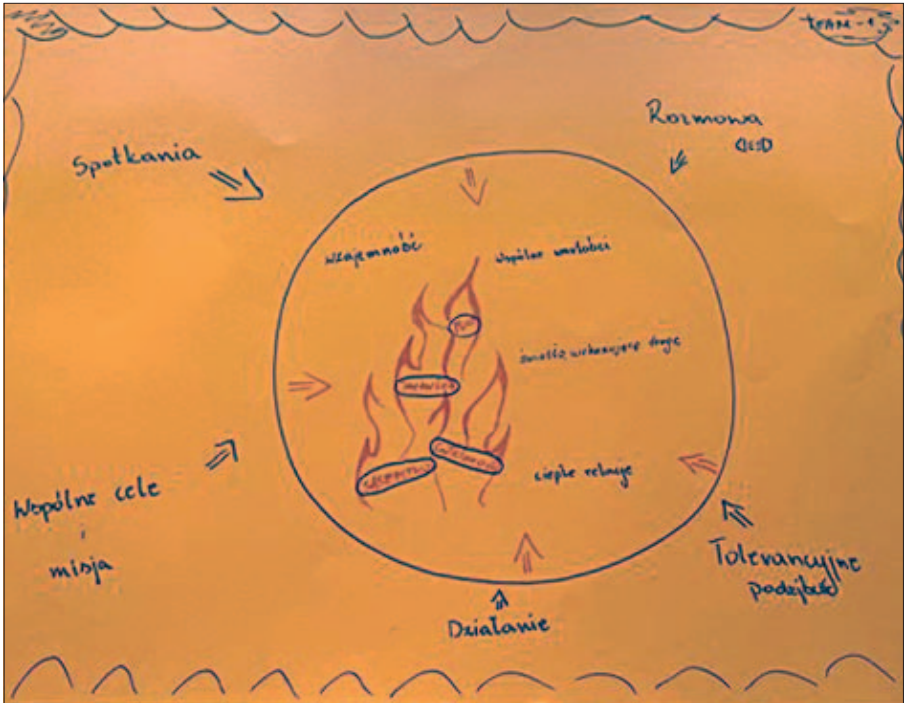 TEAM-1
Rozmowa
Spotkania
wzajemność
wspólne wartości
światło, wskazujące drogę
ciepłe relacje
Wspólne cele
i
misja
Tolerancyjne
podejście
Działanie